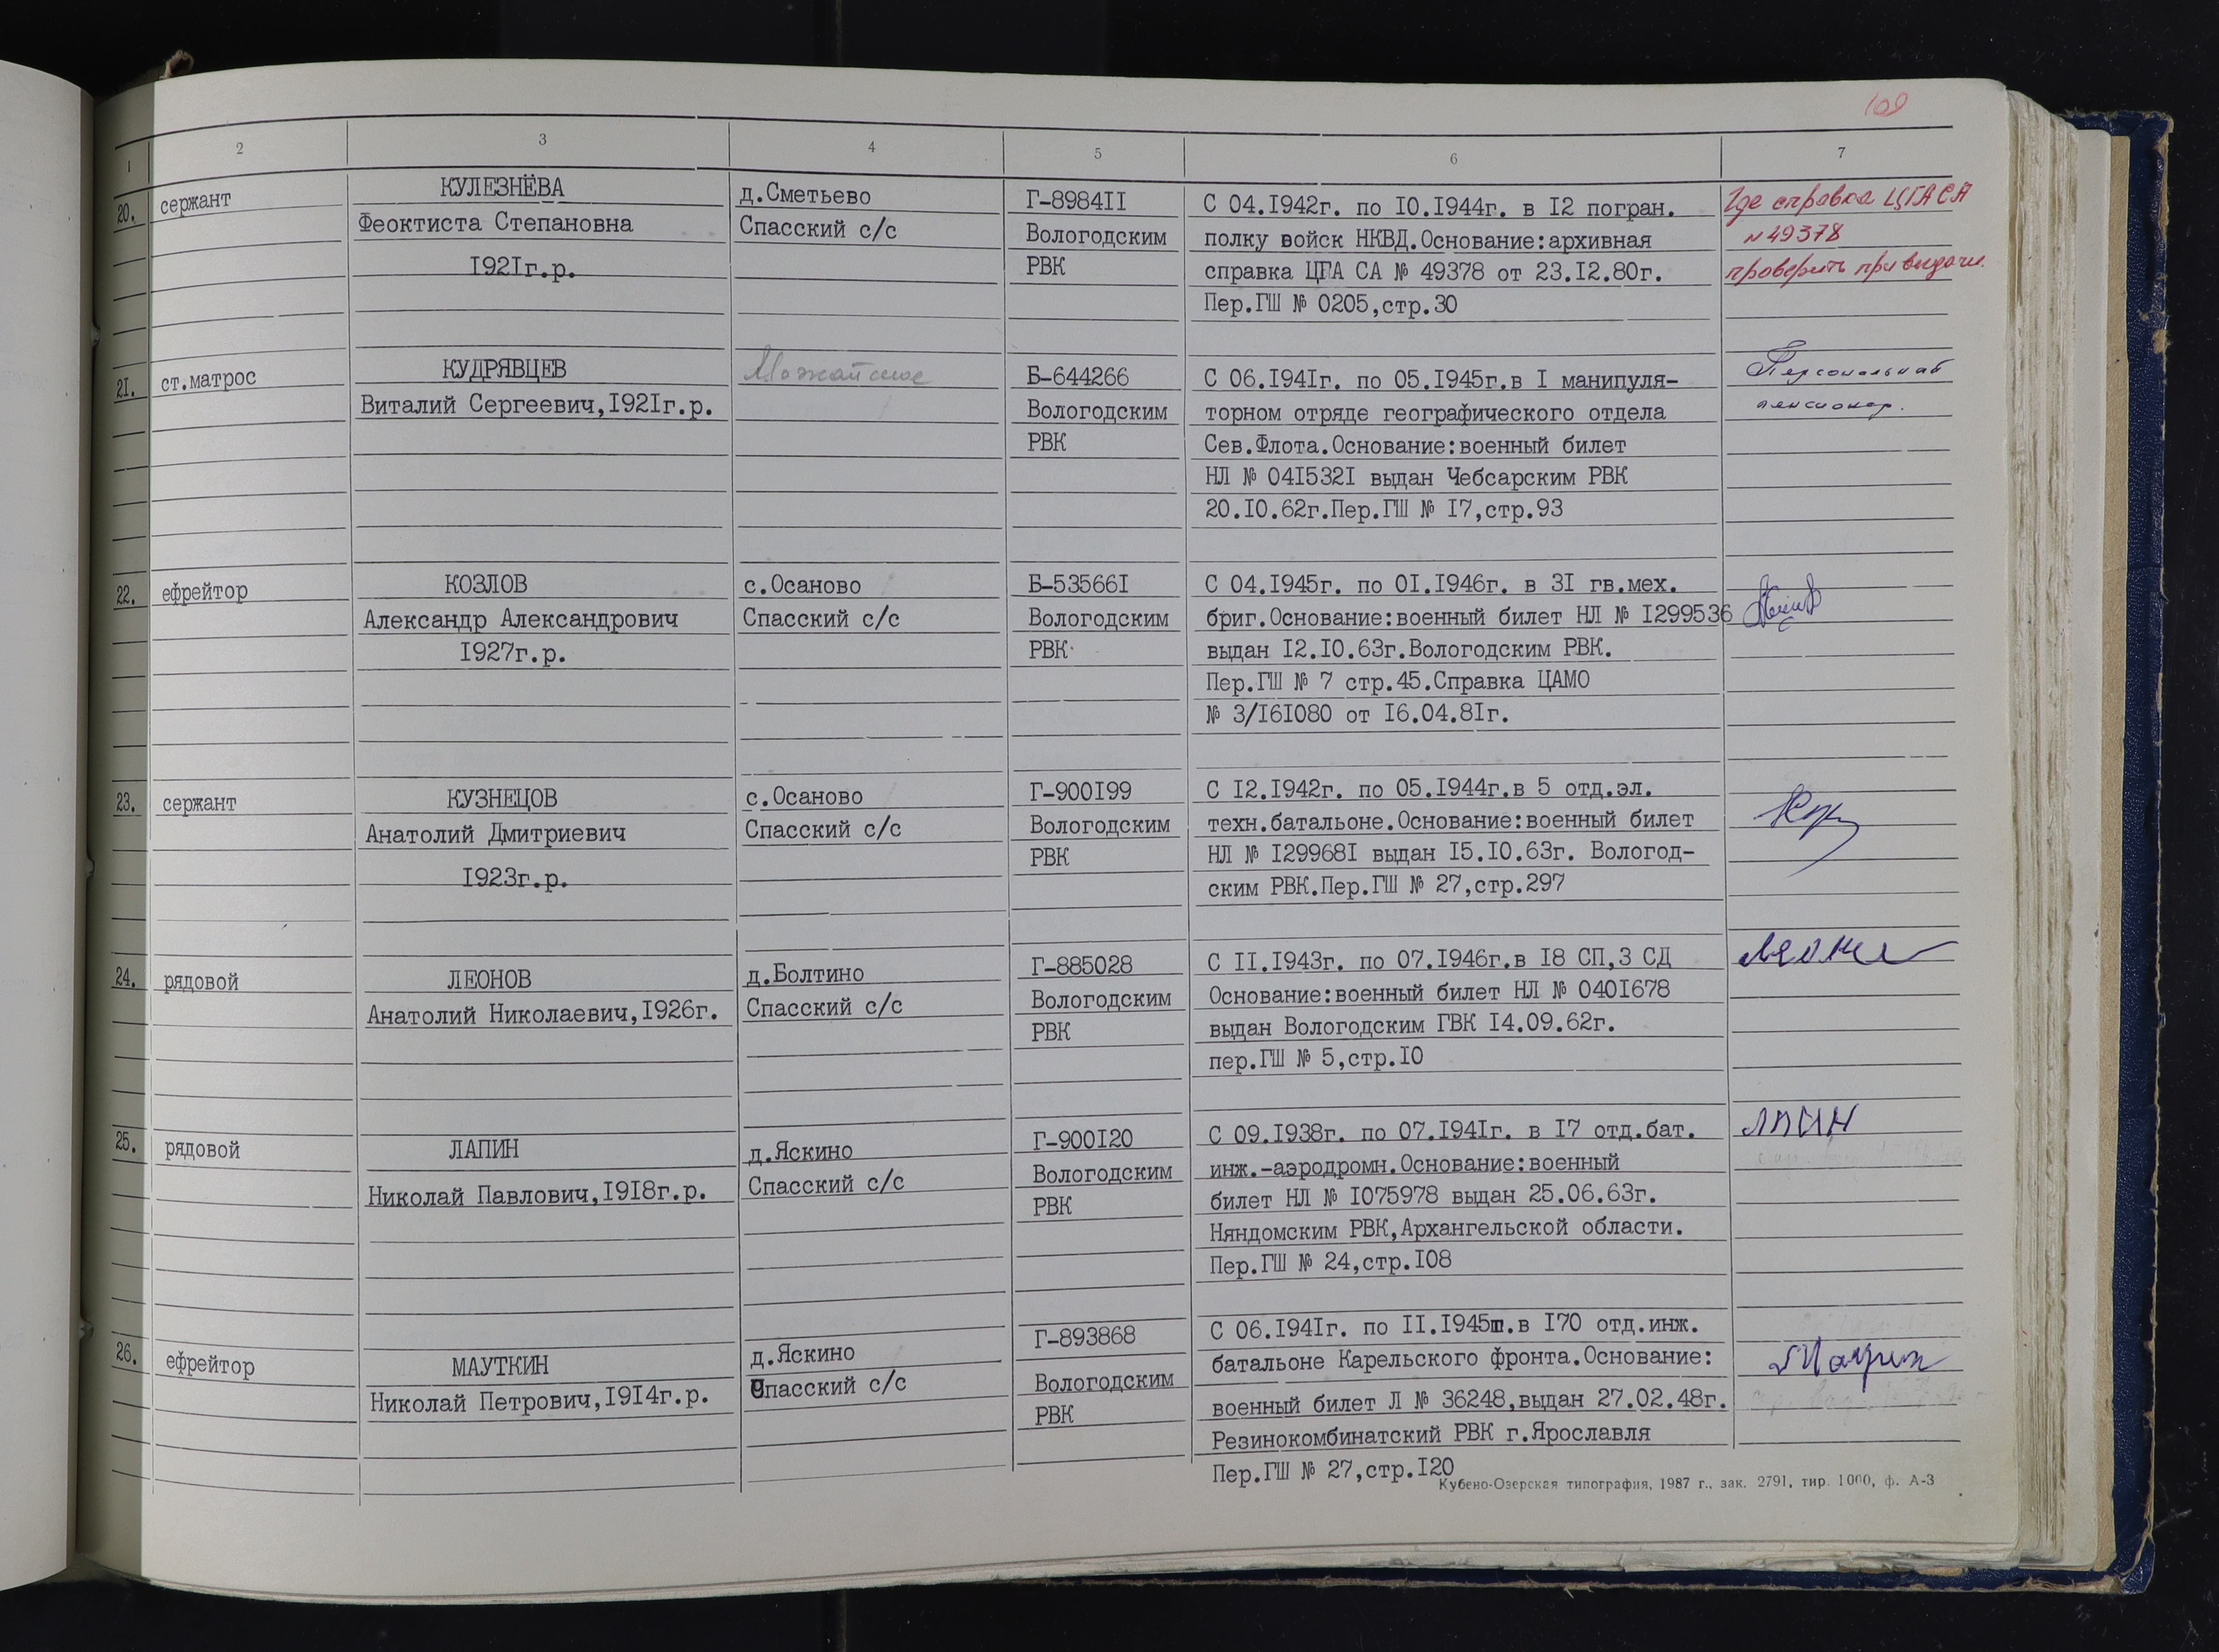 109
1 2 3 4 5 6 7
20. сержант
КУЛЕЗНЁВА
Феоктиста Степановна
I92Iг.р.
д.Сметьево
Спасский с/с
Г-8984II
Вологодским
РВК
С 04.I942г. по I0.I944г. в I2 погран.
полку войск НКВД.Основание:архивная
справка ЦГА СА № 49378 от 23.I2.80г.
Пер.ГШ № 0205,стр.30
Где справка ЦГАСА
№ 49378
проверить при выдачи.
2I. ст.матрос
КУДРЯВЦЕВ
Виталий Сергеевич,I92Iг.р.
Можайское
Б-644266
Вологодским
РВК
С 06.I94Iг. по 05.I945г.в I манипуля-
торном отряде географического отдела
Сев.Флота.Основание:военный билет
НЛ № 04I532I выдан Чебсарским РВК
20.I0.62г.Пер.ГШ № I7,стр.93
Персональный
пенсионер.
22. ефрейтор
КОЗЛОВ
Александр Александрович
I927г.р.
с.Осаново
Спасский с/с
Б-53566I
Вологодским
РВК
С 04.I945г. по 0I.I946г. в 3I гв.мех.
бриг.Основание:военный билет НЛ № I299536
выдан I2.I0.63г.Вологодским РВК.
Пер.ГШ № 7 стр.45.Справка ЦАМО
№ 3/I6I080 от I6.04.8Iг.
23. сержант
КУЗНЕЦОВ
Анатолий Дмитриевич
I923г.р.
с.Осаново
Спасский с/с
Г-900I99
Вологодским
РВК
С I2.I942г. по 05.I944г.в 5 отд.эл.
техн.батальоне.Основание:военный билет
НЛ № I29968I выдан I5.I0.63г. Вологод-
ским РВК.Пер.ГШ № 27,стр.297
24. рядовой
ЛЕОНОВ
Анатолий Николаевич,I926г.
д.Болтино
Спасский с/с
Г-885028
Вологодским
РВК
С II.I943г. по 07.I946г.в I8 СП,3 СД
Основание:военный билет НЛ № 040I678
выдан Вологодским ГВК I4.09.62г.
пер.ГШ № 5,стр.I0
25. рядовой
ЛАПИН
Николай Павлович,I9I8г.р.
д.Яскино
Спасский с/с
Г-900I20
Вологодским
РВК
С 09.I938г. по 07.I94Iг. в I7 отд.бат.
инж.-аэродромн.Основание:военный
билет НЛ № I075978 выдан 25.06.63г.
Няндомским РВК,Архангельской области.
Пер.ГШ № 24,стр.I08
26. ефрейтор
МАУТКИН
Николай Петрович,I9I4г.р.
д.Яскино
Спасский с/с
Г-893868
Вологодским
РВК
С 06.I94Iг. по II.I945г.в I70 отд.инж.
батальоне Карельского фронта.Основание:
военный билет Л № 36248,выдан 27.02.48г.
Резинокомбинатский РВК г.Ярославля
Пер.ГШ № 27,стр.I20
Кубено-Озерская типография, 1987 г., зак. 2791, тир. 1000, ф. А-3